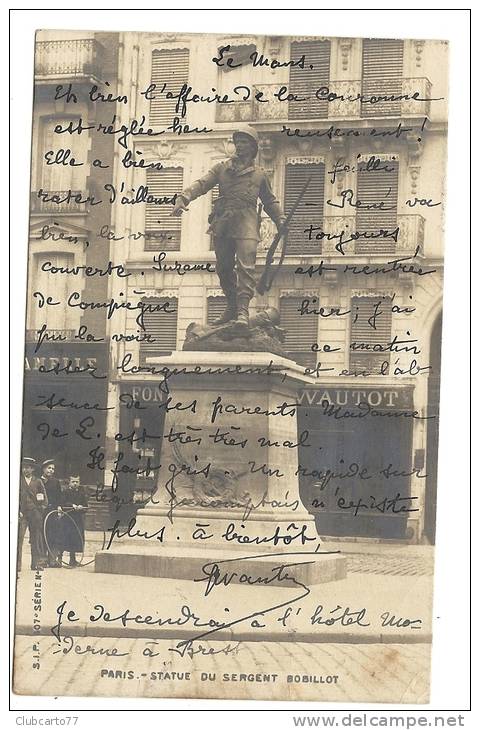 Le Mans.
Eh bien l'affaire de la Couronne
est réglée heureusement!
Elle a bien failli
rater d'ailleurs - René va
bien, la voix toujours
couverte. Suzanne est rentrée
de Compiègne hier; j'ai
pu la voir ce matin
assez longuement, et en l'ab-
sence de ses parents. Madame
de L. est très très mal.
Il fait gris. Un rapide sur
lequel je comptais n'existe
plus. à bientôt,
Je descendrai à l'hôtel Mo-
derne à Brest
AMELLE
FON
WAUTOT
S.I.P. 107e SÉRIE N
PARIS.- STATUE DU SERGENT BOBILLOT
Clubcarto77